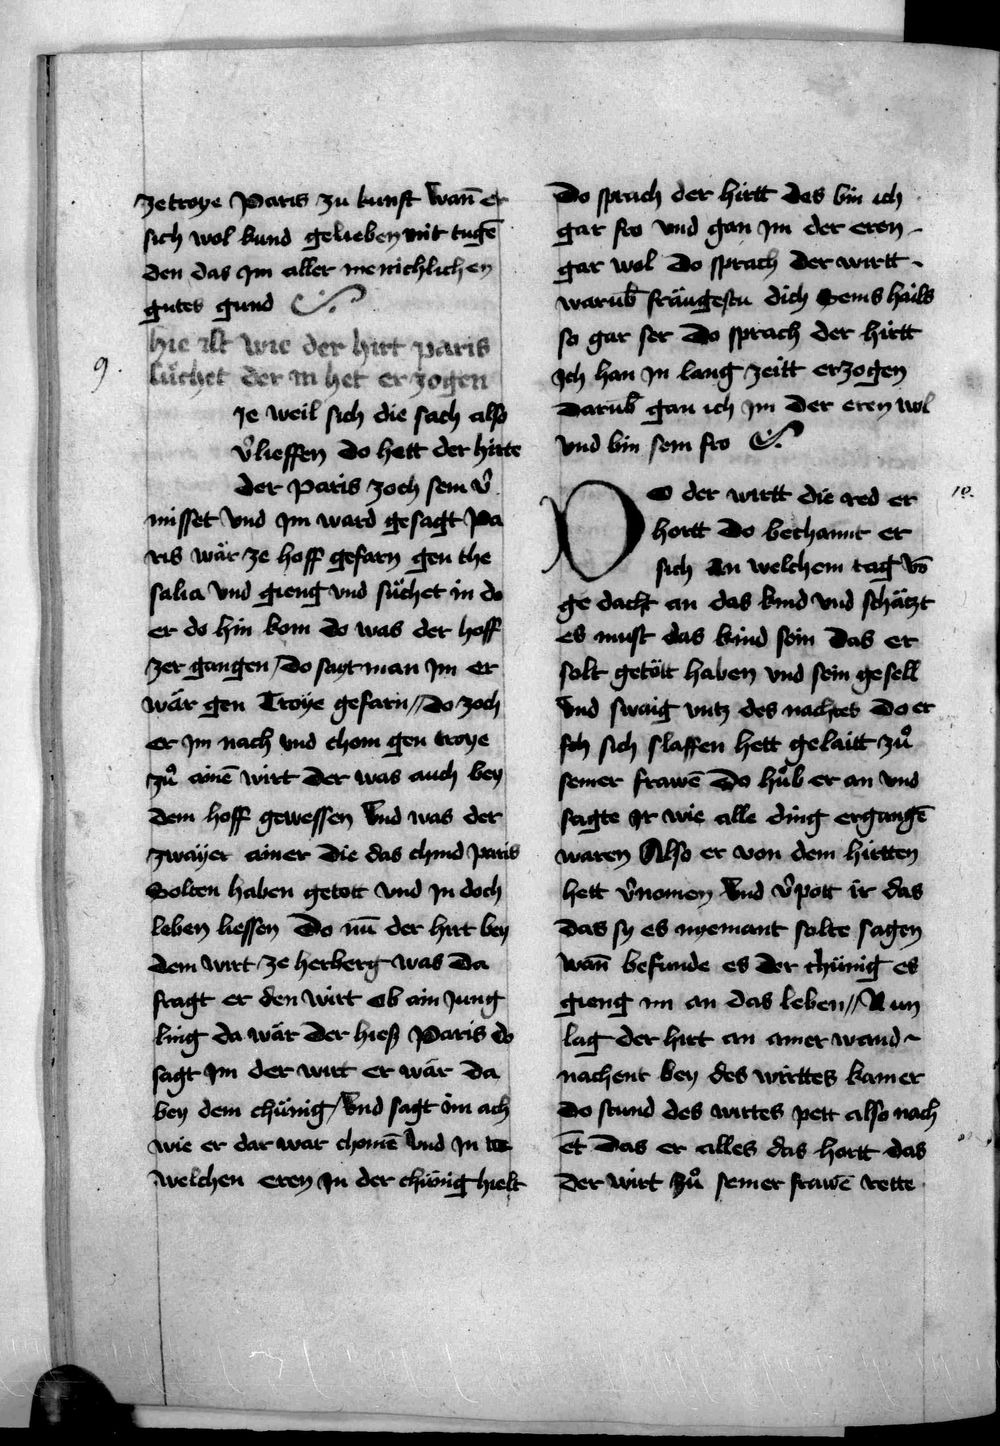 ze troye Paris zu kunst wan̄ er
sich wol kund gelieben mit tugē
den das Im aller menichlichen
gutes gund
hie ist wie der hirt paris
süchet der in het erzogen
9.
Je weil sich die sach also
v̉lieffen do hett der hirte
der paris zoch sem v̉
misset vnd Im ward gesagt Pa
ris wär ze hoff gefarn gen the
salia vnd gieng vnd süchet in do
er do hin kom do was der hoff
zer gangen / do sagt man Im er
wär gen Troÿe gefarn // Do zoch
er Im nach vnd chom gen troye
zů ainē wirt der was auch bey
dem hoff gewessen Vnd was der
zwaÿer ainer die das chind paris
Solten haben getott vnd In doch
leben liessen Do nū der hirt bey
dem wirt ze herberg was Da
fragt er den wirt Ob ain Jung
ling da wär Der hieß Paris do
sagt Im der wirt er wär Da
bey dem chünig / Vnd sagt im ach
wie er dar war chomē Vnd In
welchen eren In der chünig hielt
Do sprach der hirtt des bin ich
gar fro vnd gan Im der eren
gar wol Do sprach der wirtt
warub̄ fräugestu dich Seins hails
so gar ser Do sprach der hirtt
Ich han In lang zeitt erzogen
Darub̄ gan ich Im der eren wol
vnd bin sein fro
10.
DO der wirtt die red er
hortt Do bechannt er
sich An welchem tag vō
ge dacht an das kind vnd schätzt
es must das kind sein Das er
solt getött haben vnd sein gesell
Vnd swaig vntz des nachtes Do er
sich slaffen hett gelaitt zů
seiner frawē Do hůb er an vnd
sagte Ir wie alle ding ergangē
waren Also er von dem hirtten
hett v̉nomen Vnd v̉pott ir das
Das sy es nyemant solte sagen
wan̄ befunde es Der chünig es
gieng im an das leben // Nun
lag der hirt an ainer wand
nachent bey des wirttes kamer
Do stund des wirtes pett also nach
ēt Das er alles das hortt das
Der wirt zů seiner frawē rette